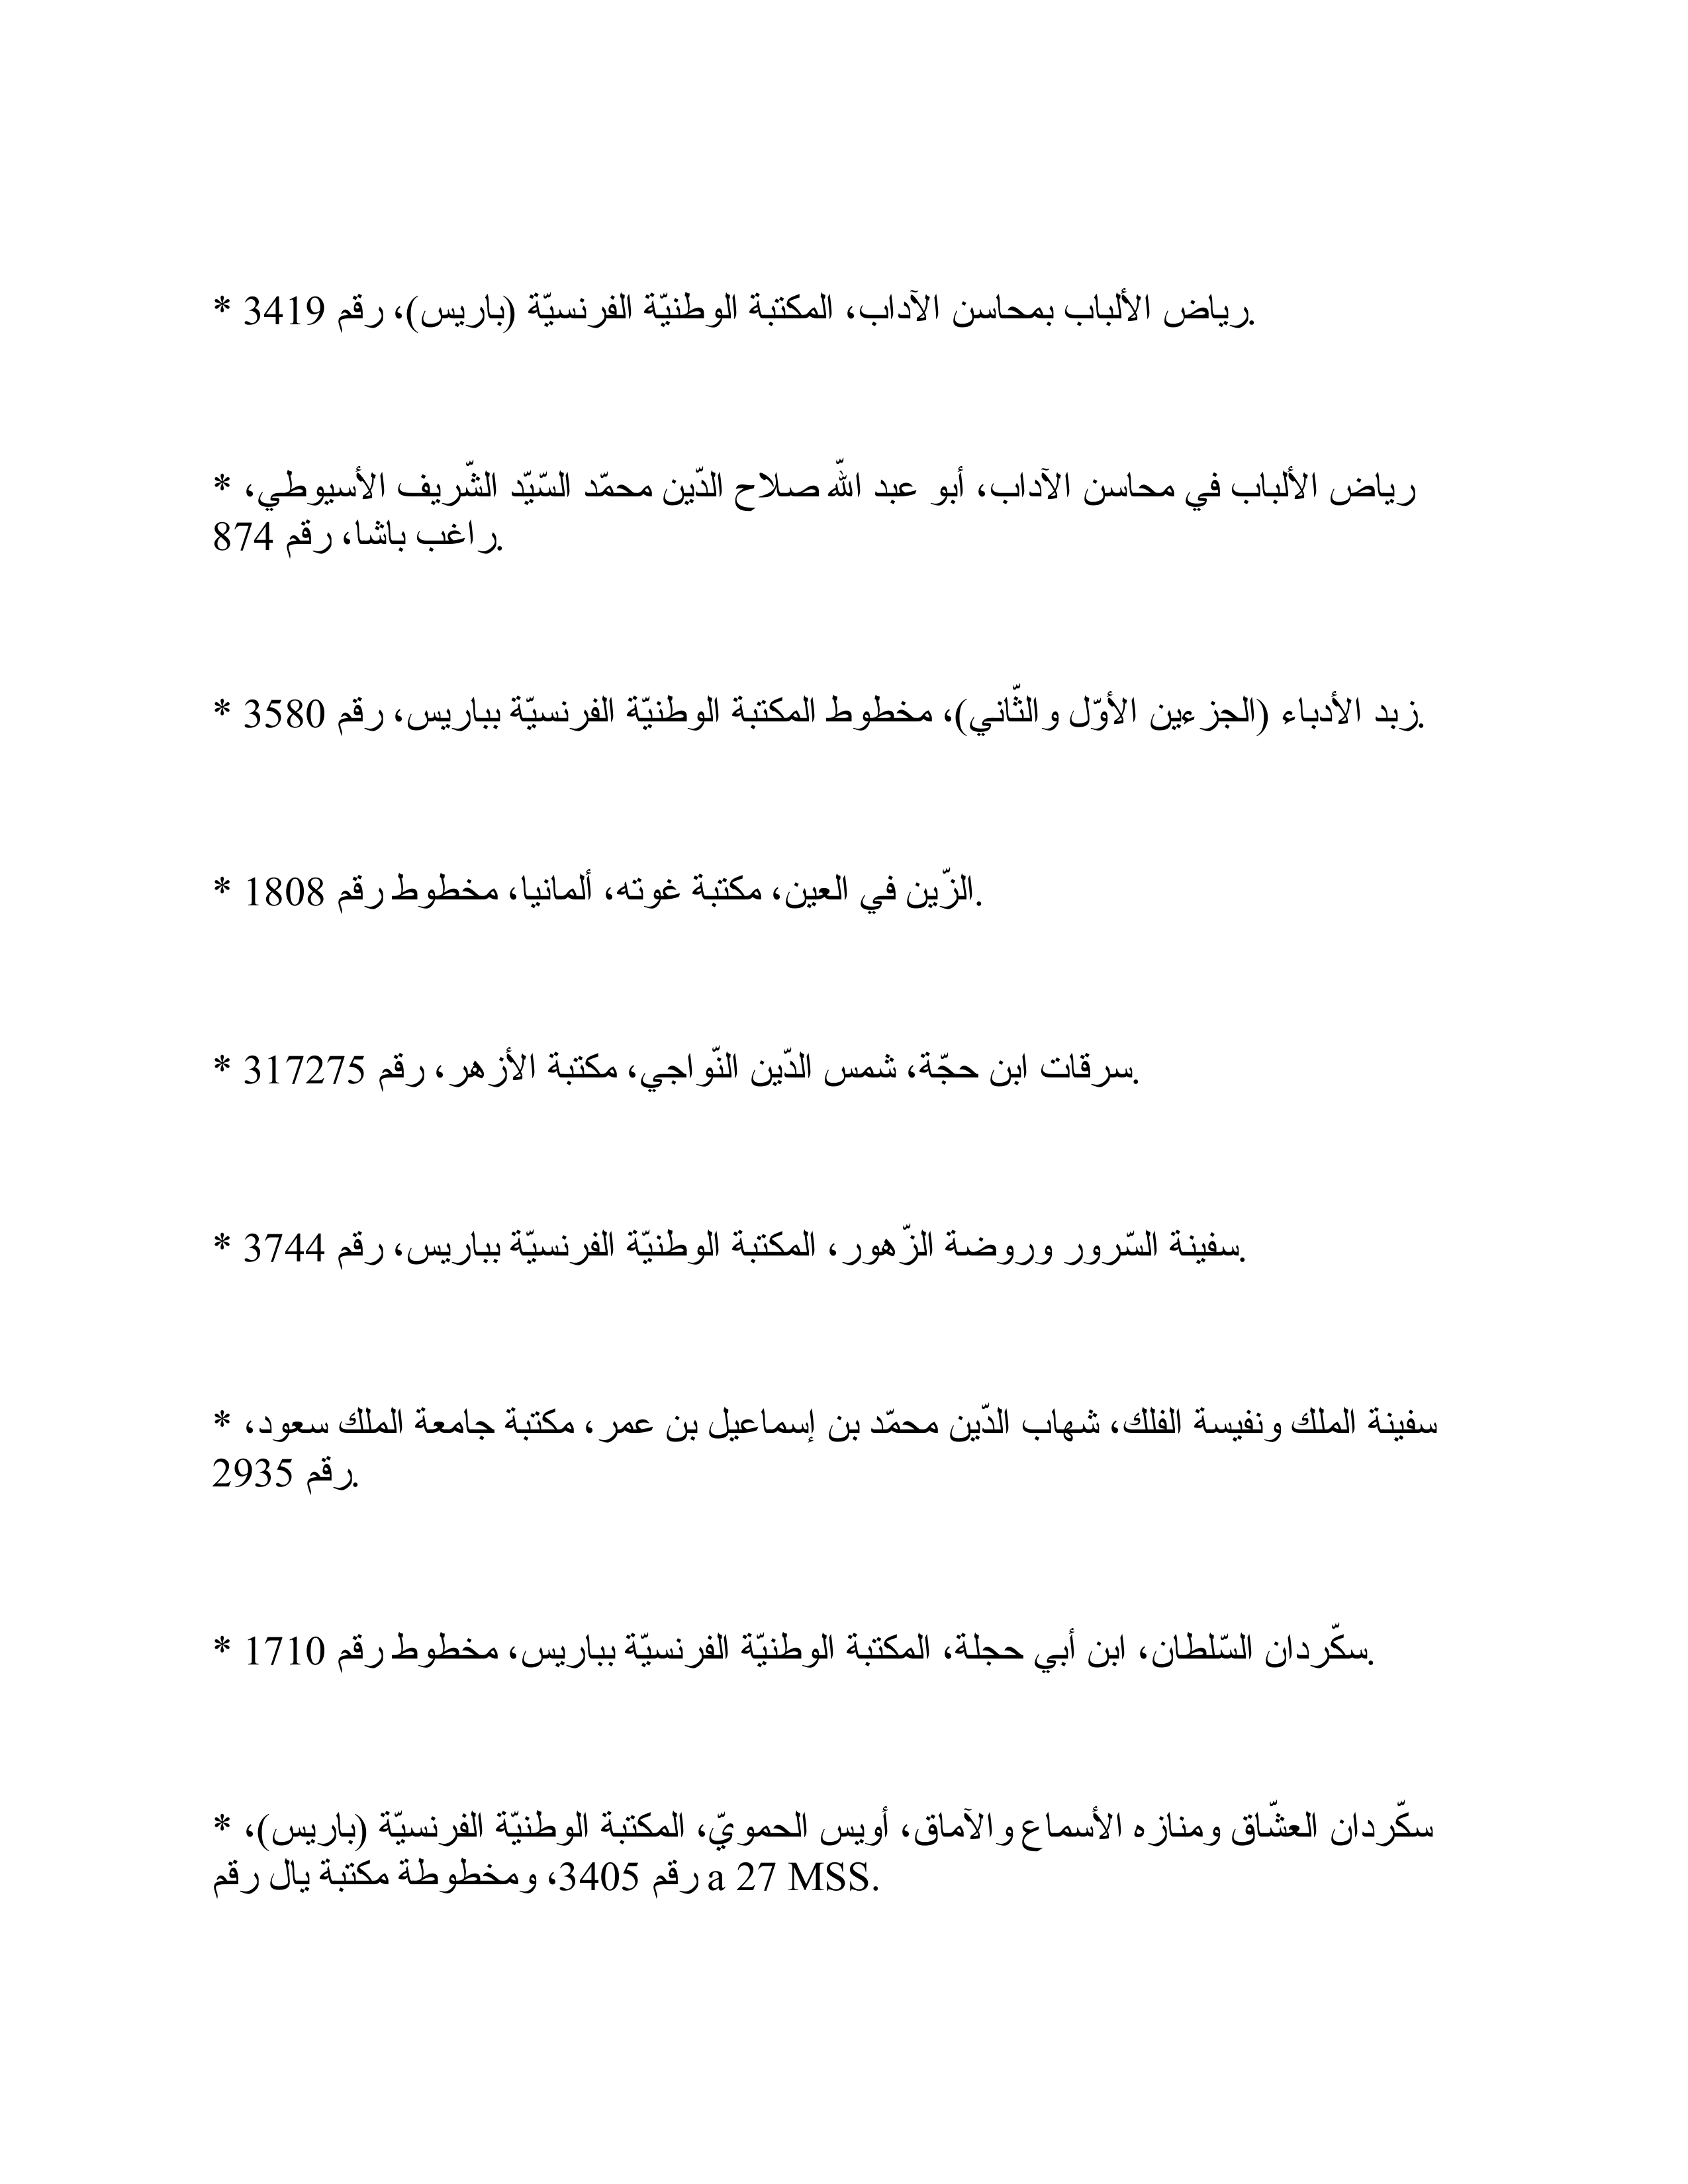 * رياض الألباب بمحاسن الآداب، المكتبة الوطنيّة الفرنسيّة (باريس)، رقم 3419.
* رياض الألباب في محاسن الآداب، أبو عبد الله صلاح الدّين محمّد السّيّد الشّريف الأسيوطي،
راغب باشا، رقم 874.
* زبد الأدباء (الجزءين الأوّل والثّاني)، مخطوط المكتبة الوطنيّة الفرنسيّة بباريس، رقم 3580.
* الزّين في العين، مكتبة غوته، ألمانيا، مخطوط رقم 1808.
* سرقات ابن حجّة، شمس الدّين النّواجي، مكتبة الأزهر، رقم 317275.
* سفينة السّرور وروضة الزّهور، المكتبة الوطنيّة الفرنسيّة بباريس، رقم 3744.
* سفينة الملك ونفيسة الفلك، شهاب الدّين محمّد بن إسماعيل بن عمر، مكتبة جامعة الملك سعود،
رقم 2935.
* سكّردان السّلطان، ابن أبي حجلة، المكتبة الوطنيّة الفرنسيّة بباريس، مخطوط رقم 1710.
* سكّردان العشّاق ومنازه الأسماع والآماق، أويس الحمويّ، المكتبة الوطنيّة الفرنسيّة (باريس)،
رقم 3405، ومخطوطة مكتبة يال رقم a 27 MSS.